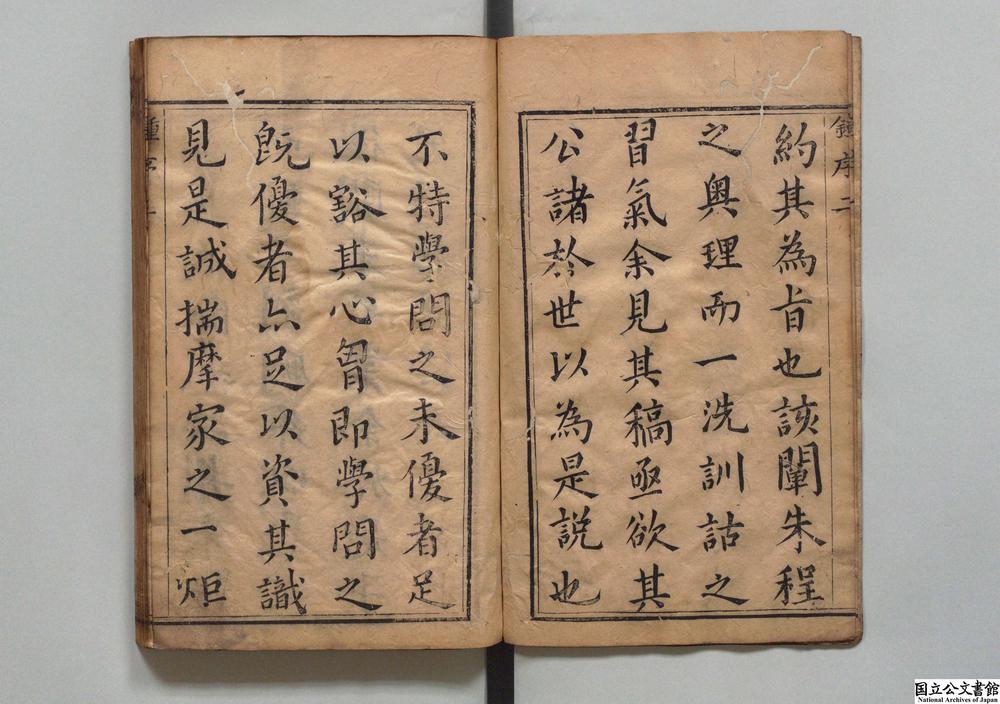 鍾序二
約其為旨也該闡朱程
之奥理而一洗訓詁之
習氣余見其稿亟欲其
公諸於世以為是説也
不特學問之未優者足
以豁其心胷即學問之
既優者亦足以資其識
見是誠揣摩家之一炬
鍾序二
国立公文書館
National Archives of Japan